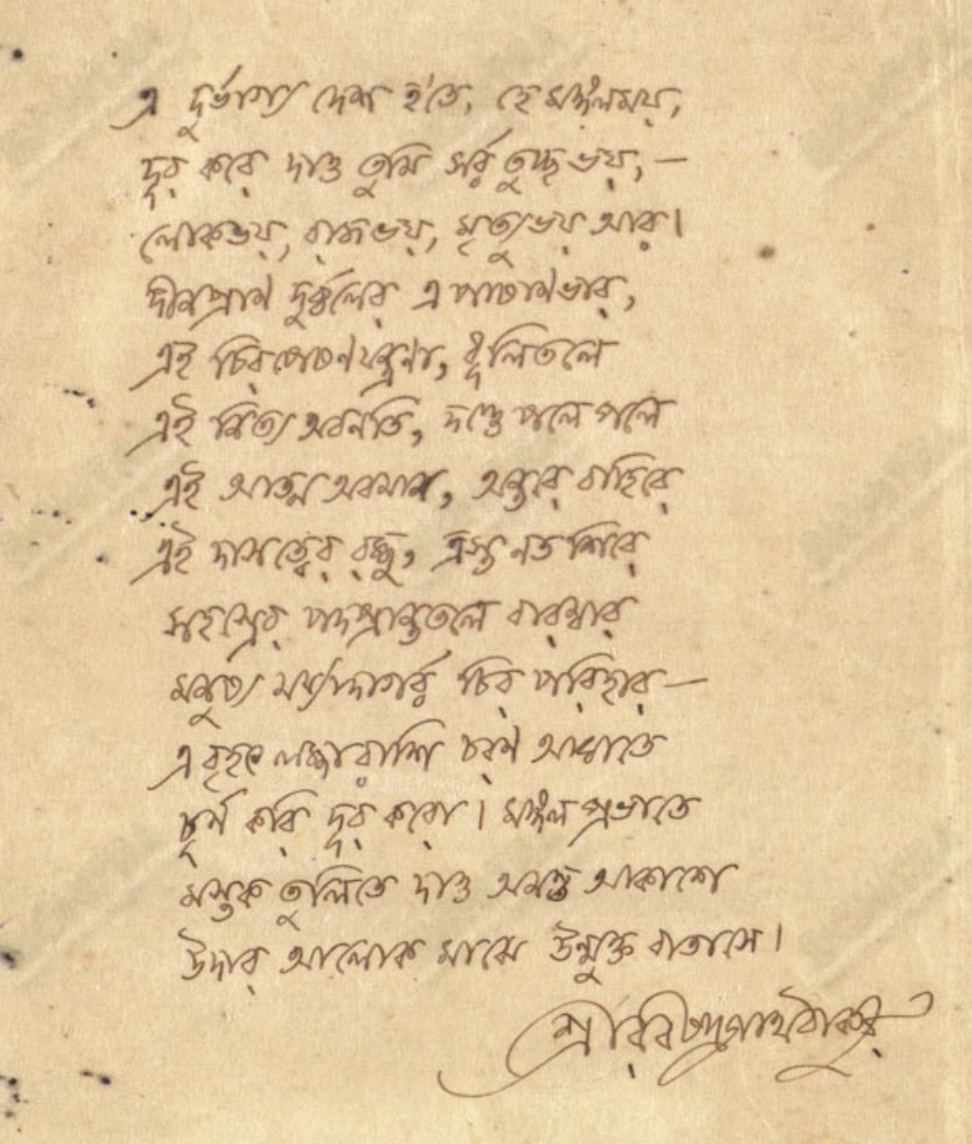 এ দুর্ভাগ্য দেশ হ'তে, হে মঙ্গলময়,
দূর করে দাও তুমি সর্ব্ব তুচ্ছ ভয়,—
লোকভয়, রাজভয়, মৃত্যুভয় আর।
দীনপ্রাণ দুর্ব্বলের এ পাষাণভার,
এই চিরপেষণযন্ত্রণা, ধূলিতলে
এই নিত্য অবনতি, দণ্ডে পলে পলে
এই আত্ম অবমান, অন্তরে বাহিরে
এই দাসত্বের রজ্জু, ত্রস্ত নতশিরে
সহস্রের পদপ্রান্ততলে বারম্বার
মনুষ্য মর্য্যাদাগর্ব্ব চির পরিহার—
এ বৃহৎ লজ্জারাশি চরণ আঘাতে
চূর্ণ করি দূর করো। মঙ্গল প্রভাতে
মস্তক তুলিতে দাও অনন্ত আকাশে
উদার আলোক মাঝে উন্মুক্ত বাতাসে।
শ্রীরবীন্দ্রনাথ ঠাকুর